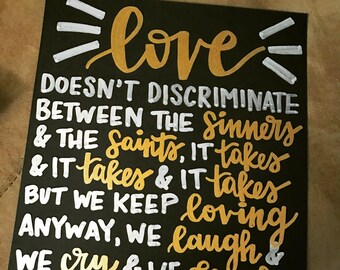 love
DOESN'T DISCRIMINATE
BETWEEN THE sinners
& THE saints, IT takes
& IT takes & IT takes
BUT WE KEEP loving
ANYWAY, WE laugh &
WE cry & WE